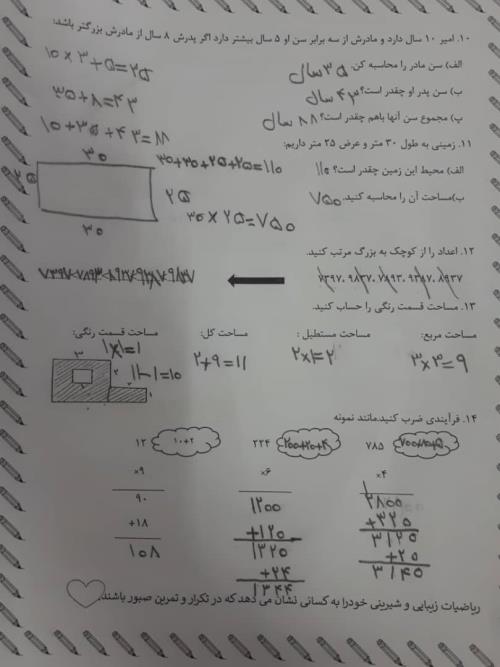 ۱۰. امیر ۱۰ سال دارد و مادرش از سه برابر سن او ۵ سال بیشتر دارد اگر پدرش ۸ سال از مادرش بزرگتر باشد:
الف) سن مادر را محاسبه کن. ۳۵ سال ۱۰×۳+۵=۳۵
ب) سن پدر او چقدر است؟ ۴۳ سال ۳۵+۸=۴۳
پ) مجموع سن آنها باهم چقدر است؟ ۸۸ سال ۱۰+۳۵+۴۳=۸۸
۱۱. زمینی به طول ۳۰ متر و عرض ۲۵ متر داریم:
الف) محیط این زمین چقدر است؟ ۱۱۰ ۳۰+۳۰+۲۵+۲۵=۱۱۰
۳۰
۲۵
۲۵
۳۰
ب)مساحت آن را محاسبه کنید. ۷۵۰ ۳۰×۲۵=۷۵۰
۱۲. اعداد را از کوچک به بزرگ مرتب کنید.
۱۳. مساحت قسمت رنگی را حساب کنید.
مساحت مربع: مساحت مستطیل: مساحت کل: مساحت قسمت رنگی:
۳×۳=۹ ۲×۱=۲ ۲+۹=۱۱ ۱×۱=۱
۱۱-۱=۱۰
۱۴. فرآیندی ضرب کنید.مانند نمونه
۷۸۵ ۷۰۰+۸۰+۵ ۲۲۴ ۲۰۰+۲۰+۴ ۱۲ ۱۰+۲
×۴ ×۶ ×۹
۲۸۰۰ ۱۲۰۰ ۹۰
+۳۲۰ +۱۲۰ +۱۸
۳۱۲۰ ۱۳۲۰ ۱۰۸
+۲۰ +۲۴
۳۱۴۰ ۱۳۴۴
ریاضیات زیبایی و شیرینی خودرا به کسانی نشان می دهد که در تکرار و تمرین صبور باشند.